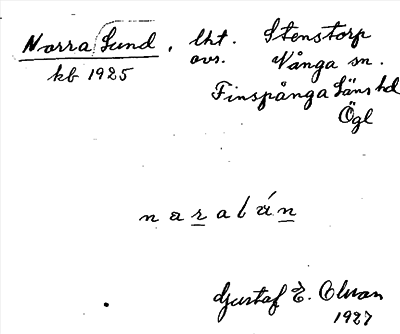 Norra Lund, lht. Stenstorp
kb 1925 avs. Vånga sn.
Finspånga Läns hd
Ögl
naralún
Gustaf E.
1927